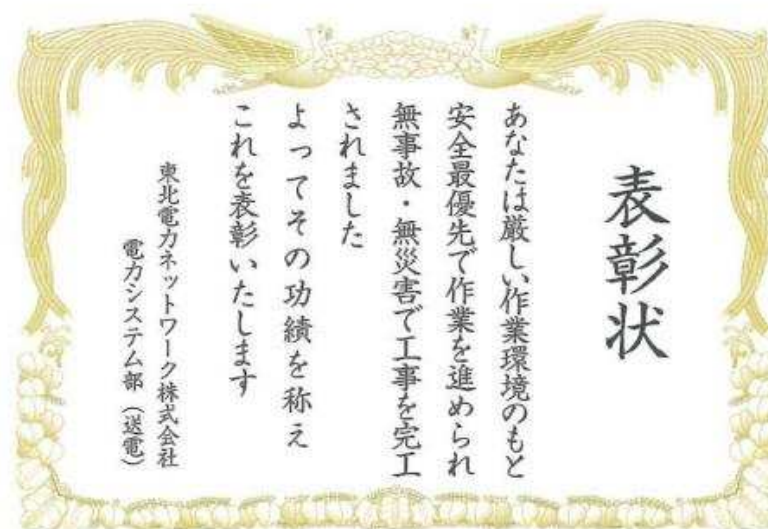 表彰状
あなたは厳しい作業環境のもと
安全最優先で作業を進められ
無事故・無災害で工事を完工
されました
よってその功績を称え
これを表彰いたします
東北電力ネットワーク株式会社
電力システム部（送電）